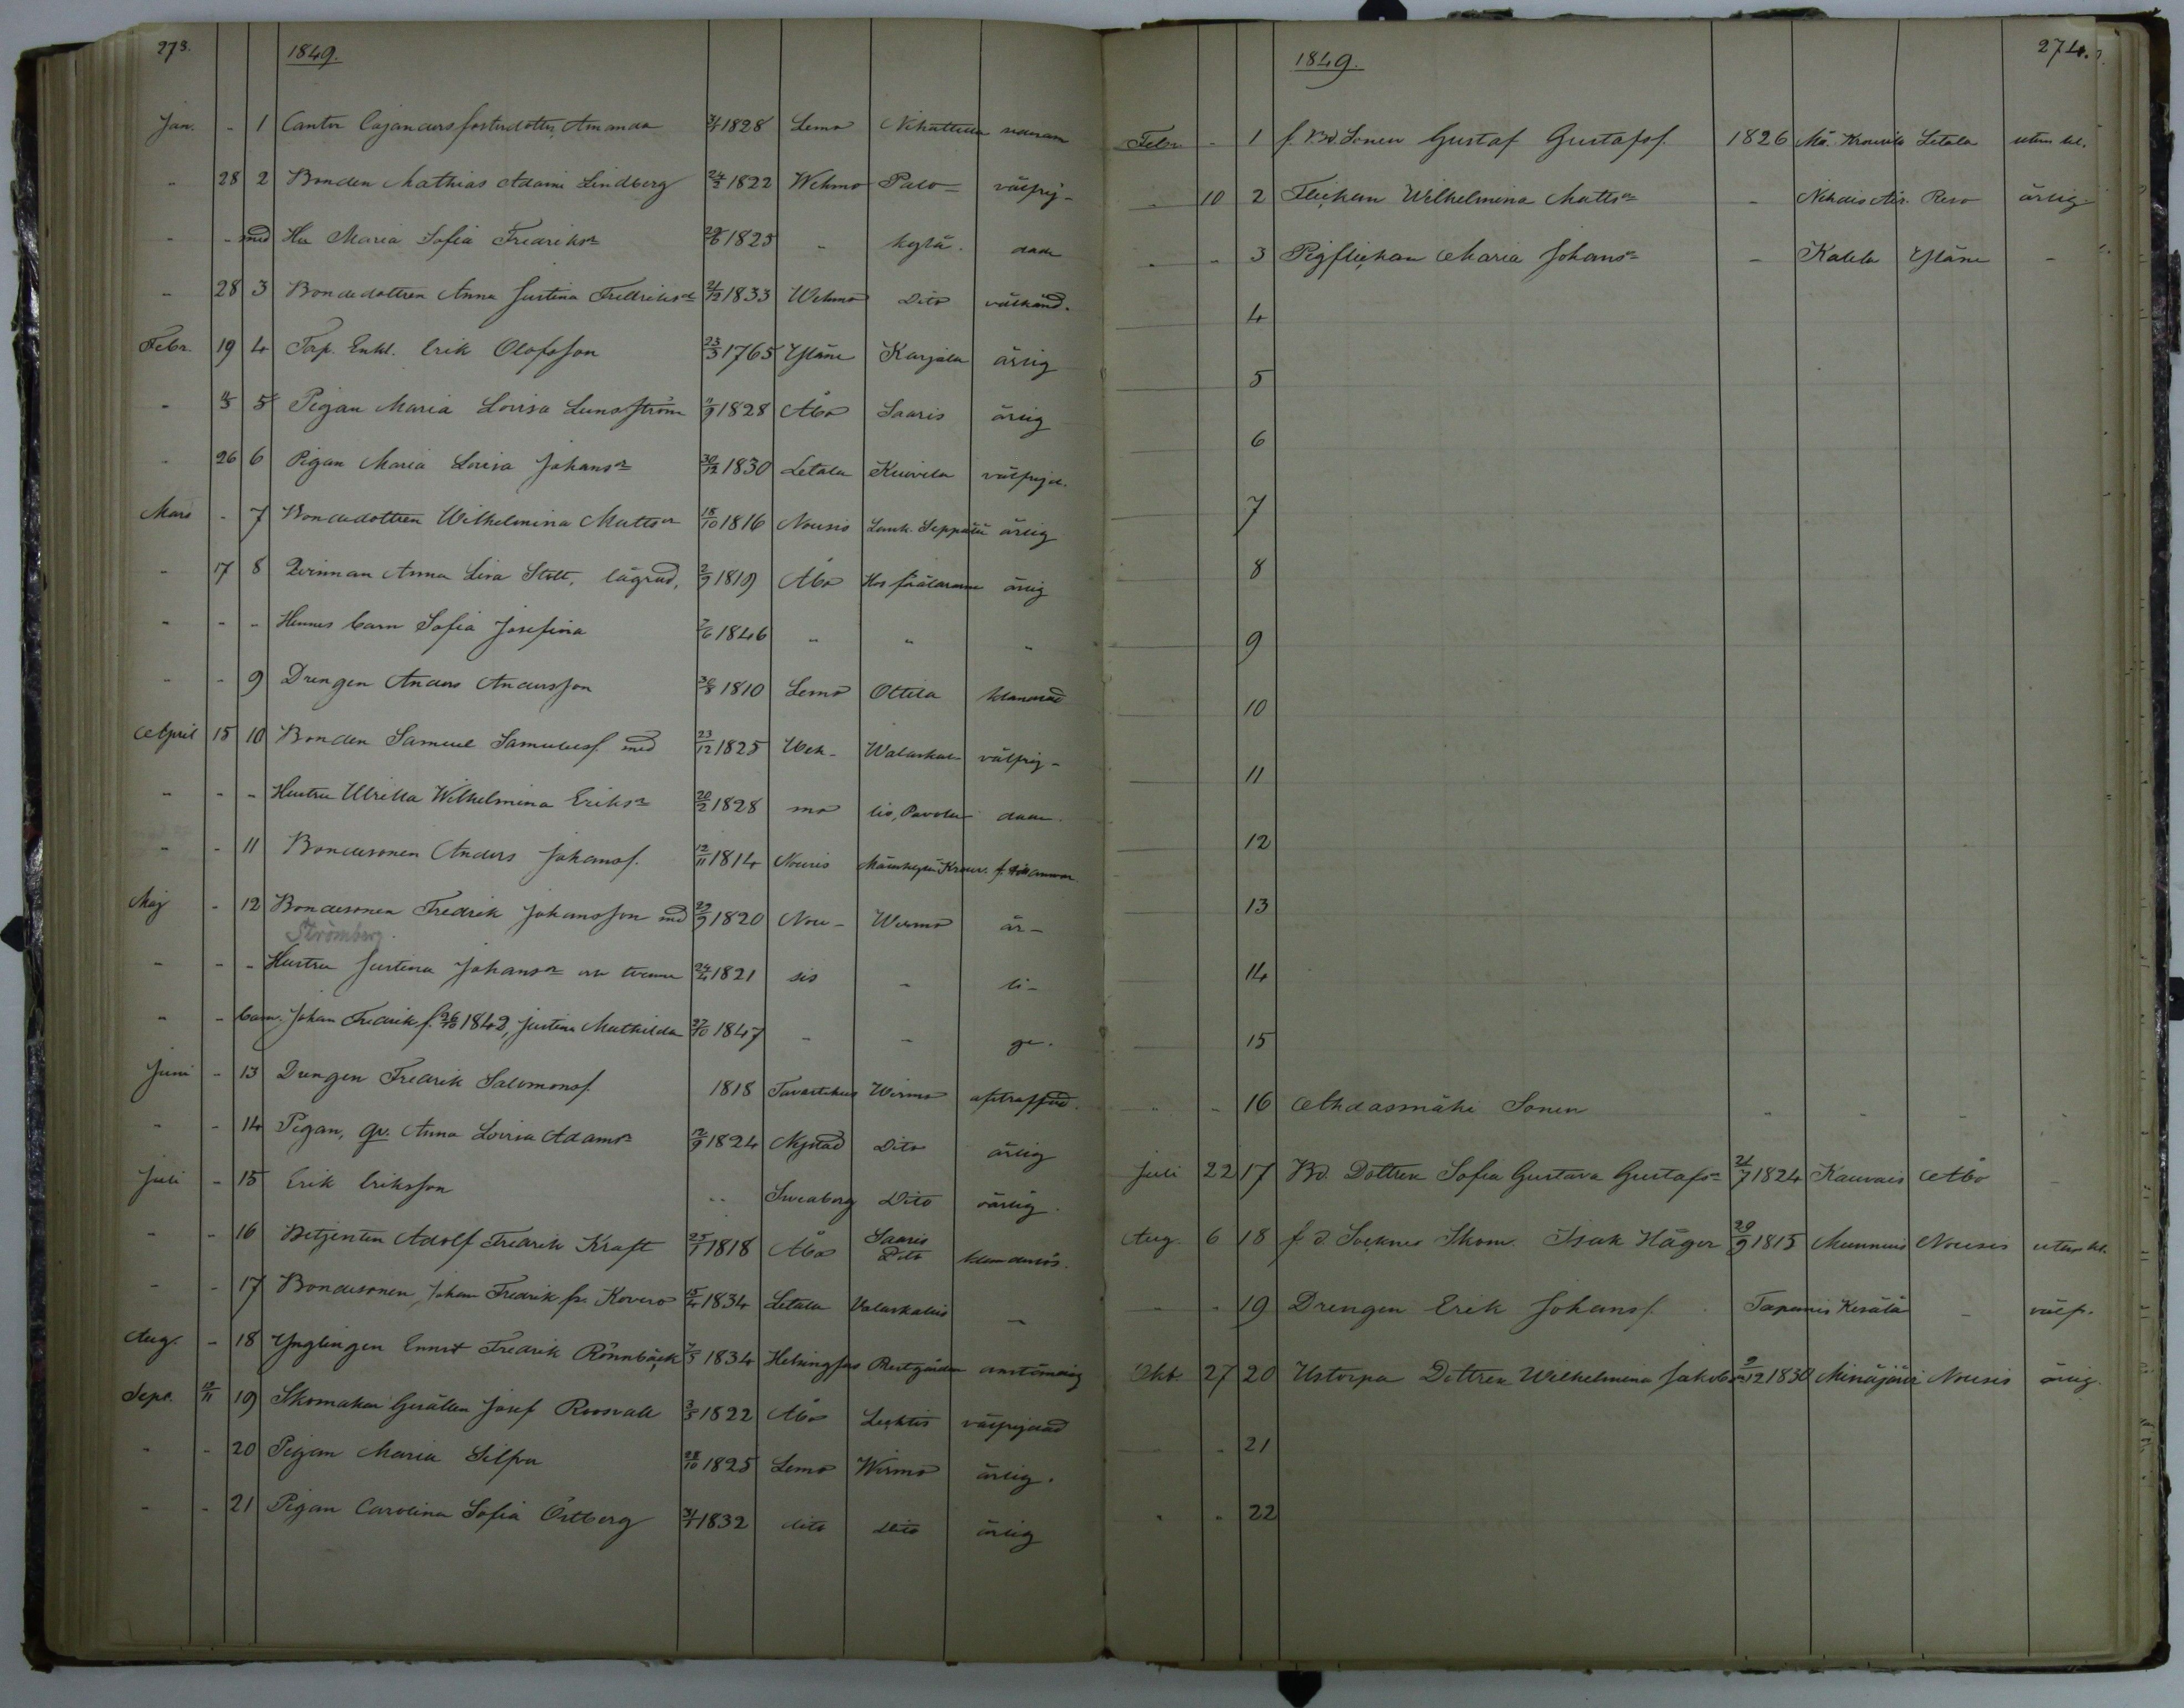 273.
1849.
Jan. - 1 Cantor Cajanders fosterdotter, Amanda 1828 Lemo Nihattula
" 28 2 Bonden Mathias Adami Lindberg 24/2 1822 Wehmo Palo- välfrej-
" " med Hu Maria Sofia Fredriksr 1825 " kylä. dade
" 28 3 Bondedottren Anna Justina Fredriksr 21/12 1833 Wehmo Dito välkänd.
Febr. 19 4 Torp. Enkl. Erik Olofsson 23/3 1765 Yläne Karjala ärlig
" 11/3 5 Pigan Maria Lovisa Lunsström 11/9 1828 Åbo Saaris ärlig
" 26 6 Pigan Maria Lovisa Johansr 30/12 1830 Letala Kuivela välfrejd.
Mars - 7 Bondedottren Wilhelmina Mattsr 18/10 1816 Nousis Lank. Seppälä ärlig
" 17 8 Qvinnan Anna Lisa Stolt, lägrad, 2/9 1819 Åbo Hos föräldrarne ärlig
" - - Hennes barn Sofia Josefina 7/6 1846 " " "
" - 9 Drengen Anders Andersson 30/8 1810 Lemo Ottila klandrad
April 15 10 Bonden Samuel Samuelsf. med 23/12 1825 Weh- Walaskal- välfrej-
" - - Hustru Ulrika Wilhelmina Eriksr 20/2 1828 mo lis, Pavola dade.
" - 11 Bondesonen Anders Johansf. 12/11 1814 Nousis Mainkylä Krouv.
Maj - 12 Bondesonen Fredrik Johansson med 29/9 1820 Nou- Wirmo är-
Strömberg.
" - - Hustru Justina Johansr o tvenne 24/4 1821 sis - li-
" - barn. Johan Fredrik f. 26/10 1842, Justina Mathilda 27/10 1847 - - ge.
Juni - 13 Drengen Fredrik Salomonsf. 1818 Tavastehus Wirmo afstraffad.
" - 14 Pigan, qv. Anna Lovisa Adamsr 12/9 1824 Nystad Dito ärlig
Juli - 15 Erik Eriksson " Sveaborg Dito ärlig.
" - 16 Betjenten Adolf Fredrik Kraft 25/1 1818 Åbo Saaris Dito klanderlös.
" - 17 Bondesonen, Johan Fredrik fr. Kovero 15/4 1834 Letala Valaskallis -
Aug. - 18 Ynglingen Ernst Fredrik Rönnbäck 7/5 1834 Helsingfors Prestgården anständig
Sept. 12/11 19 Skomakeri Gesällen Josef Roosvall 3/5 1822 Åbo Lechtis välfrejdad
" - 20 Pigan Maria Silfva 28/10 1825 Lemo Wirmo ärlig.
" - 21 Pigan Carolina Sofia Östberg 31/1 1832 dito dito ärlig
274.
1849.
Febr. - 1 f. Bd. Sonen Gustaf Gustafsf. 1826 Mä. Krouvila Letala utan kl.
" 10 2 Flickan Wilhelmina Mattsr - Nihais Reso ärlig
" " 3 Pigflickan Maria Johansr - Kalela Yläne -
4
5
6
7
8
9
10
11
12
13
14
15
" - 16 Ahdasmäki Sonen " - - -
Juli 22 17 Bd. Dottren Sofia Gustava Gustafsr 21/7 1824 Kauvais Åbo
Aug. 6 18 f. d. Sockne Skom. Isak Häger 29/9 1815 Munnuis Nousis utan kl.
" - 19 Drengen Erik Johansf. Tapanis Kesälä - välf.
Okt 27 20 Ustorpa Dottren Wilhelmina Jakobsr 9/12 1830 Minäjärvi Nousis ärlig.
" - 21
" " 22